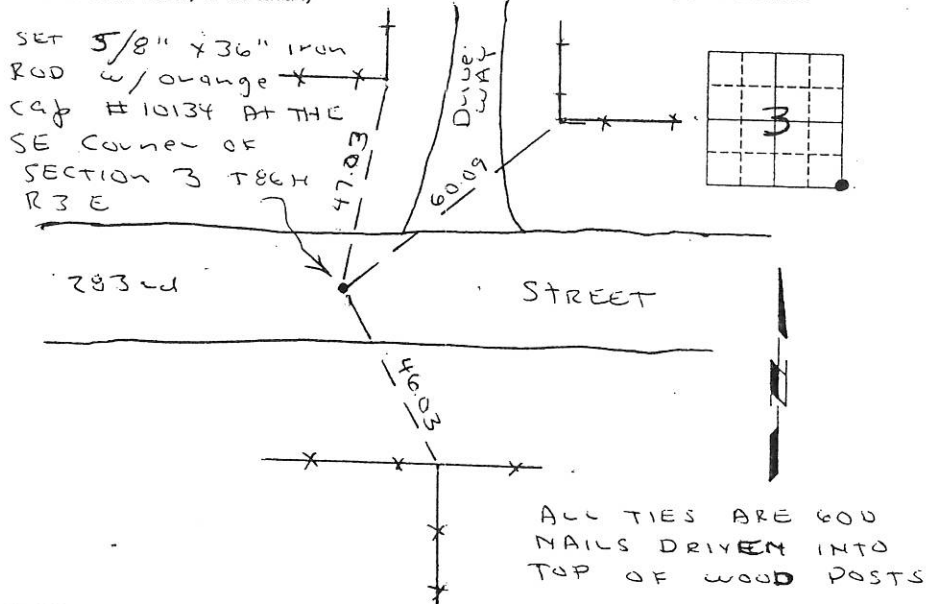 SET 5/8" x 36" Iron
ROD w/ orange
cap # 10134 At THE
SE Corner of
SECTION 3 T86N
R3E
47.03
Drive
WAY
60.09
3
283rd STREET
46.03
N
ALL TIES ARE 60D
NAILS DRIVEN INTO
TOP OF WOOD POSTS